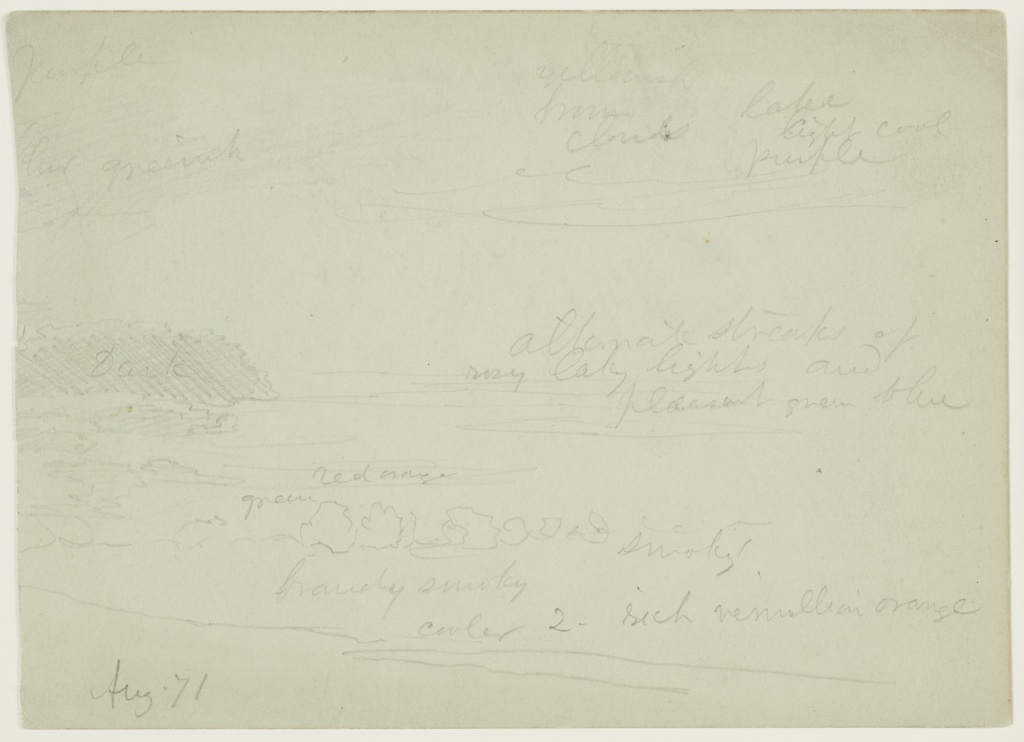 purple
yellowish
brown
clouds
lake
light cool
purple
greenish
Dark
alternate streaks of
rosy laky lights and
pleasant green blue
red orange
green
smoky
smoky
cooler 2 - rich vermillion orange
Aug. 71